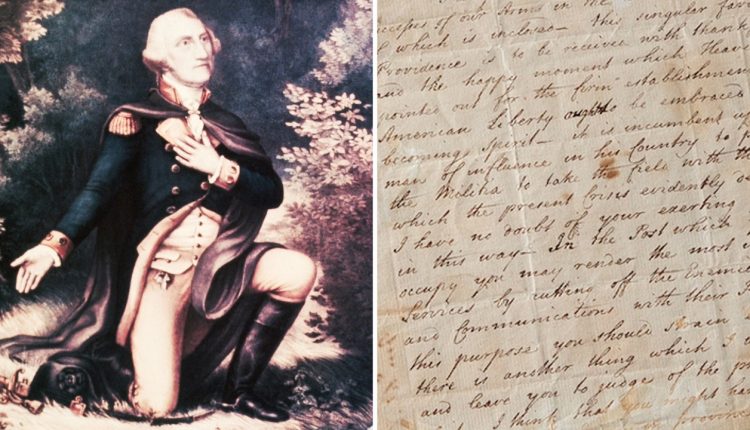 ccesses of our Arms in the
of which is inclosed— this singular fav
Providence is to be received with thank
and the happy moment which Heav
pointed out for the firm establishmen
American Liberty ought to be embraced
becoming spirit— it is incumbent up
men of influence in his Country to
the Militia to take the field with th
which the present Crisis evidently de
I have no doubt of your exerting
in this way— In the Post which
occupy you may render the most
Services by cutting off the Enemie
and Communications with their
this purpose you should strain
there is another thing which I
and leave you to judge of the pr
I think that you might ha
province